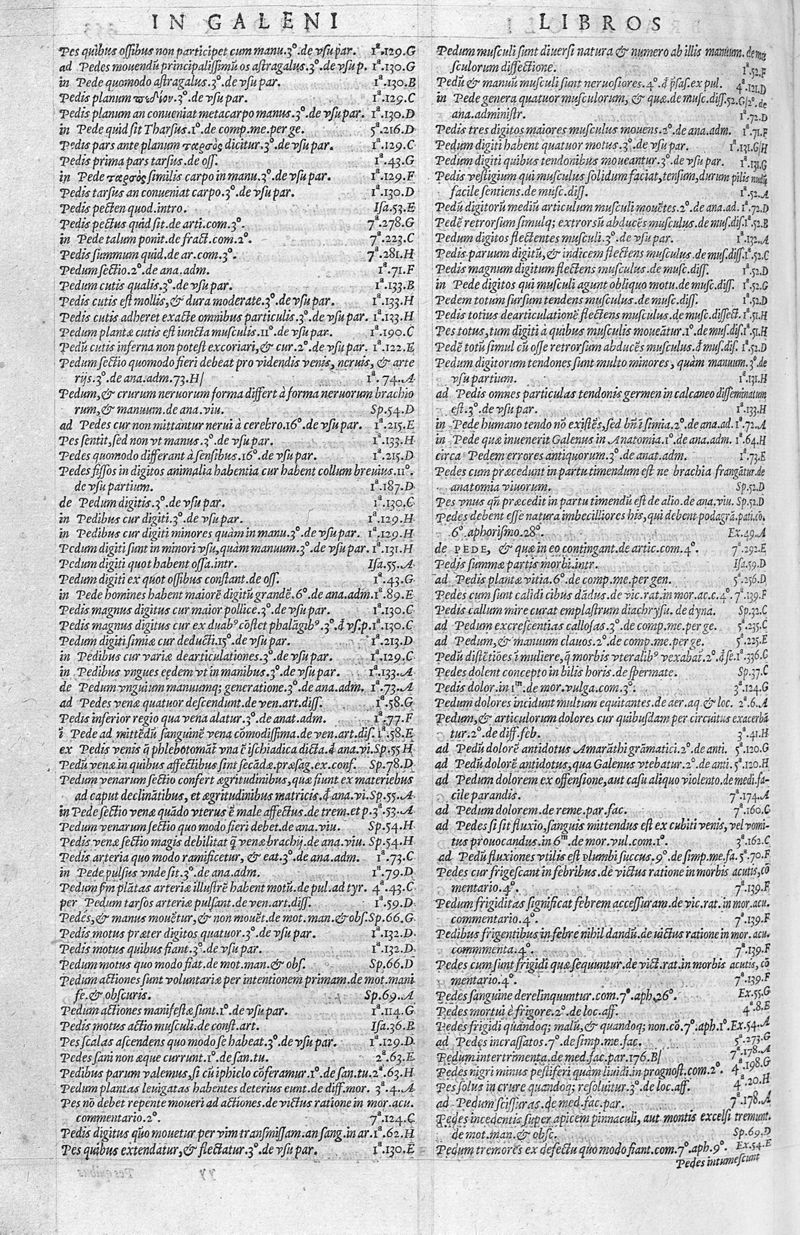 IN GALENI
Pes quibus oſſibus non participet cum manu.3º.de vſu par. 1ª.129.G
ad Pedes mouendū principaliſſimū os aſtragalus.3º.de vſu p. 1ª.130.G
in Pede quomodo aſtragalus.3º.de vſu par. 1ª.130.B
Pedis planum πεδίον.3º.de vſu par. 1ª.129.C
Pedis planum an conueniat metacarpo manus.3º.de vſu par. 1ª.130.D
in Pede quid ſit Tharſus.1º.de comp.me.per ge. 5ª.216.D
Pedis pars ante planum ταρσὸς dicitur.3º.de vſu par. 1ª.129.C
Pedis prima pars tarſus.de oſſ. 1ª.43.G
in Pede ταρσὸς ſimilis carpo in manu.3º.de vſu par. 1ª.129.F
Pedis tarſus an conueniat carpo.3º.de vſu par. 1ª.130.D
Pedis pecten quod.intro. Iſa.53.E
Pedis pectus quid ſit.de arti.com.3º. 7ª.278.G
in Pede talum ponit.de fract.com.2º. 7ª.223.C
Pedis ſummum quid.de ar.com.3º. 7ª.281.H
Pedum ſectio.2º.de ana.adm. 1ª.71.F
Pedum cutis qualis.3º.de vſu par. 1ª.133.B
Pedis cutis eſt mollis,& dura moderate.3º.de vſu par. 1ª.133.H
Pedis cutis adheret exacte omnibus particulis.3º.de vſu par. 1ª.133.H
Pedum plantæ cutis eſt iuncta muſculis.11º.de vſu par. 1ª.190.C
Pedū cutis inferna non poteſt excoriari,& cur.2º.de vſu par. 1ª.122.E
Pedum ſectio quomodo fieri debeat pro videndis venis, neruis, & arte
rijs.3º.de ana.adm.73.H/ 1ª.74.A
Pedum,& crurum neruorum forma differt à forma neruorum brachio
rum,& manuum.de ana.viu. Sp.54.D
ad Pedes cur non mittantur nerui à cerebro.16º.de vſu par. 1ª.215.E
Pes ſentit,ſed non vt manus.3º.de vſu par. 1ª.133.H
Pedes quomodo differant à ſenſibus.16º.de vſu par. 1ª.215.D
Pedes fiſſos in digitos animalia habentia cur habent collum breuius.11º.
de vſu partium. 1ª.187.D
de Pedum digitis.3º.de vſu par. 1ª.130.C
in Pedibus cur digiti.3º.de vſu par. 1ª.129.H
in Pedibus cur digiti minores quàm in manu.3º.de vſu par. 1ª.129.H
Pedum digiti ſunt in minori vſu,quàm manuum.3º.de vſu par. 1ª.131.H
Pedum digiti quot habent oſſa.intr. Iſa.55.A
Pedum digiti ex quot oſſibus conſtant.de oſſ. 1ª.43.G
in Pede homines habent maiorē digitū grandē.6º.de ana.adm. 1ª.89.E
Pedis magnus digitus cur maior pollice.3º.de vſu par. 1ª.130.C
Pedis magnus digitus cur ex duabº cōſtet phalāgibº.3º.d vſ.p. 1ª.130.C
Pedum digiti ſimiæ cur deducti.15º.de vſu par. 1ª.213.D
in Pedibus cur variæ dearticulationes.3º.de vſu par. 1ª.129.C
in Pedibus vngues eędem vt in manibus.3º.de vſu par. 1ª.133.A
de Pedum vnguium manuumq; generatione.3º.de ana.adm. 1ª.73.A
ad Pedes venæ quatuor deſcendunt.de ven.art.diſſ. 1ª.58.G
Pedis inferior regio qua vena alatur.3º.de anat.adm. 1ª.77.F
ī Pede ad mittēdū ſanguinē vena cōmodiſſima.de ven.art.diſ. 1ª.58.E
ex Pedis venis q̄ phlebotomāt vna ē iſchiadica dicta.d̄ ana.vi. Sp.55 H
Pedū venæ in quibus affectibus ſint ſecādæ,præſag.ex.conf. Sp.78.D
Pedum venarum ſectio confert ægritudinibus, quæ fiunt ex materiebus
ad caput declinātibus, et ægritudinibus matricis.d̄ ana.vi. Sp.55.A
in Pede ſectio venæ quādo vterus ē male affectus.de trem.et p. 3ª.53.A
Pedum venarum ſectio quo modo fieri debet.de ana.viu. Sp.54.H
Pedis venæ ſectio magis debilitat q̄ venæ brachij.de ana.viu. Sp.54.H
Pedis arteria quo modo ramificetur, & eat.3º.de ana.adm. 1ª.73.C
in Pede pulſus vnde ſit.3º.de ana.adm. 1ª.79.D
Pedum ſm plātas arteriæ illuſtrē habent motū.de pul.ad tyr. 4ª.43.C
per Pedum tarſos arteriæ pulſant.de ven.art.diſſ. 1ª.59.D
Pedes,& manus mouētur,& non mouēt.de mot.man.& obſ. Sp.66.G
Pedis motus præter digitos quatuor.3º.de vſu par. 1ª.132.D
Pedis motus quibus fiant.3º.de vſu par. 1ª.132.D
Pedum motus quo modo fiat.de mot.man.& obſ. Sp.66.D
Pedum actiones ſunt voluntariæ per intentionem primam.de mot.mani
fe.& obſcuris. Sp.69.A
Pedum actiones manifeſtæ ſunt.1º.de vſu par. 1ª.114.G
Pedis motus actio muſculi.de conſt.art. Iſa.36.B
Pes ſcalas aſcendens quo modo ſe habeat.3º.de vſu par. 1ª.129.D
Pedes ſani non æque currunt.1º.de ſan.tu. 2ª.63.E
Pedibus parum valemus,ſi cū iphiclo cōferamur.1º.de ſan.tu. 2ª.63.H
Pedum plantas leuigatas habentes deterius eunt.de diff.mor. 3ª.4.A
Pes nō debet repente moueri ad actiones.de victus ratione in mor.acu.
commentario.2º. 7ª.124.C
Pedis digitus quo mouetur per vim tranſmiſſam.an ſang.in ar. 1ª.62.H
Pes quibus extendatur,& flectatur.3º.de vſu par. 1ª.130.E
LIBROS
Pedum muſculi ſunt diuerſi natura & numero ab illis manuum.de mu
ſculorum diſſectione. 1ª.52.F
Pedū & manuū muſculi ſunt neruoſiores.4º.d̄ p̄ſaſ.ex pul. 4ª.121.D
in Pede genera quatuor muſculorum, & quæ.de muſc.diſſ.52.G/2º.de
ana.adminiſtr. 1ª.72.D
Pedis tres digitos maiores muſculus mouens.2º.de ana.adm. 1ª.71.F
Pedum digiti habent quatuor motus.3º.de vſu par. 1ª.131.G/H
Pedum digiti quibus tendonibus moueantur.3º.de vſu par. 1ª.131.G
Pedis veſtigium qui muſculus ſolidum faciat,tenſum,durum pilis nudū
facile ſentiens.de muſc.diſſ. 1ª.52.A
Pedū digitorū mediū articulum muſculi mouētes.2º.de ana.ad. 1ª.72.D
Pedē retrorſum ſimulq; extrorſū abducēs muſculus.de muſ.diſ. 1ª.52.B
Pedum digitos flectentes muſculi.3º.de vſu par. 1ª.132.A
Pedis paruum digitū,& indicem flectens muſculus.de muſ.diſſ. 1ª.52.C
Pedis magnum digitum flectens muſculus.de muſc.diſſ. 1ª.52.D
in Pede digitos qui muſculi agunt obliquo motu.de muſc.diſſ. 1ª.52.G
Pedem totum ſurſum tendens muſculus.de muſc.diſſ. 1ª.52.D
Pedis totius dearticulationē flectens muſculus.de muſc.diſſect. 1ª.51.H
Pes totus,tum digiti à quibus muſculis moueātur.1º.de muſ.diſ. 1ª.51.H
Pedē totū ſimul cū oſſe retrorſum abducēs muſculus.d̄ muſ.diſ. 1ª.52.D
Pedum digitorum tendones ſunt multo minores, quàm manuum.3º.de
vſu partium. 1ª.131.H
ad Pedis omnes particulas tendonis germen in calcaneo diſſeminatum
eſt.3º.de vſu par. 1ª.133.H
in Pede humano tendo nō exiſtēs,ſed bn̄ ī ſimia.2º.de ana.ad. 1ª.72.A
in Pede quæ inuenerit Galenus in Anatomia.1º.de ana.adm. 1ª.64.H
circa Pedem errores antiquorum.3º.de anat.adm. 1ª.73.E
Pedes cum præcedunt in partu timendum eſt ne brachia frangātur.de
anatomia viuorum. Sp.52.D
Pes vnus qn̄ præcedit in partu timendū eſt de alio.de ana.viu. Sp.52.D
Pedes debent eſſe natura imbecilliores his,qui debent podagrā.pati.cō.
6º.aphoriſmo.28º. Ex.49.A
de PEDE, & quæ in eo contingant.de artic.com.4º. 7ª.292.E
Pedis ſummæ partis morbi.intr. Iſa.59.D
ad Pedis plantæ vitia.6º.de comp.me.per gen. 5ª.256.D
Pedes cum ſunt calidi cibus dādus.de vic.rat.in mor.ac.c.4º. 7ª.139.F
Pedis callum mire curat emplaſtrum diachryſu.de dyna. Sp.32.C
ad Pedum excreſcentias calloſas.3º.de comp.me.per ge. 5ª.235.C
ad Pedum,& manuum clauos.2º.de comp.me.per ge. 5ª.225.E
Pedū diſtētiōes ī muliere,q̄ morbis vteralibº vexabat.2º.d̄ ſe. 1ª.336.C
Pedes dolent concepto in bilis horis.de ſpermate. Sp.37.C
Pedis dolor.in 1m.de mor.vulga.com.3º. 3ª.124.G
Pedum dolores incidunt multum equitantes.de aer.aq.& loc. 2ª.6.A
Pedum,& articulorum dolores cur quibuſdam per circuitus exacerbā
tur.2º.de diff.feb. 3ª.41.H
ad Pedū dolorē antidotus Amarāthi grāmatici.2º.de anti. 5ª.120.G
ad Pedū dolorē antidotus,qua Galenus vtebatur.2º.de anti. 5ª.120.H
ad Pedum dolorem ex offenſione, aut caſu aliquo violento.de med.fa-
cile parandis. 7ª.174.A
ad Pedum dolorem.de reme.par.fac. 7ª.160.C
ad Pedes ſi ſit fluxio,ſanguis mittendus eſt ex cubiti venis, vel vomi-
tus prouocandus.in 6m.de mor.vul.com.1º. 3ª.162.C
ad Pedū fluxiones vtilis eſt plumbi ſuccus.9º.de ſimp.me.fa. 5ª.70.F
Pedes cur frigeſcant in febribus.de victus ratione in morbis acutis,cō
mentario.4º. 7ª.139.F
Pedum frigiditas ſignificat febrem acceſſuram.de vic.rat.in mor.acu.
commentario.4º. 7ª.139.F
Pedibus frigentibus in febre nihil dandū.de victus ratione in mor.acu.
commenta.4º. 7ª.139.F
Pedes cum ſunt frigidi quæ ſequuntur.de vict.rat.in morbis acutis, cō
mentario.4º. 7ª.139.F
Pedes ſanguine derelinquuntur.com.7º.aph.26º. Ex.55.G
Pedes mortui è frigore.2º.de loc.aff. 4ª.8.E
Pedes frigidi quandoq; malū,& quandoq; non.cō.7º.aph.1º. Ex.54.A
ad Pedes incraſſatos.7º.de ſimp.me.fac. 5ª.273.G
Pedum intertrimenta.de med.fac.par.176.B/ 7ª.178.A
Pedes nigri minus peſtiferi quàm liuidi.in prognoſt.com.2º. 4ª.198.G
Pes ſolus in crure quandoq; reſoluitur.3º.de loc.aff. 4ª.20.H
ad Pedum ſciſſuras.de med.fac.par. 7ª.178.A
Pedes incedentis ſuper apicem pinnaculi, aut montis excelſi tremunt.
de mot.man.& obſc. Sp.69.D
Pedum tremores ex defectu quo modo fiant.com.7º.aph.9º. Ex.54.E
Pedes intumeſcunt